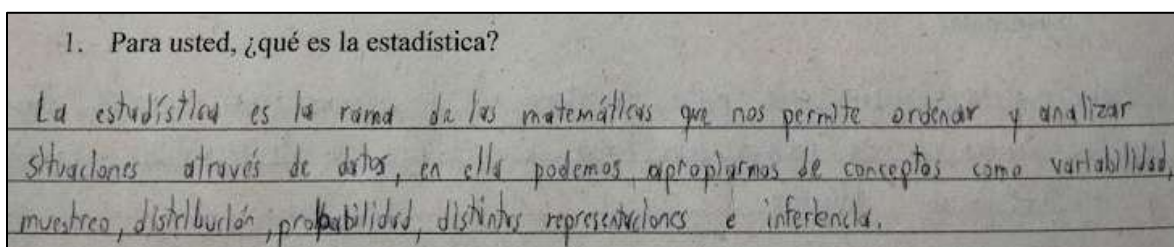 1. Para usted, ¿qué es la estadística?
La estadística es la rama de las matemáticas que nos permite ordenar y analizar
situaciones através de datos, en ella podemos apropiarnos de conceptos como variabilidad,
muestreo, distribución, probabilidad, distintas representaciones e inferencia.